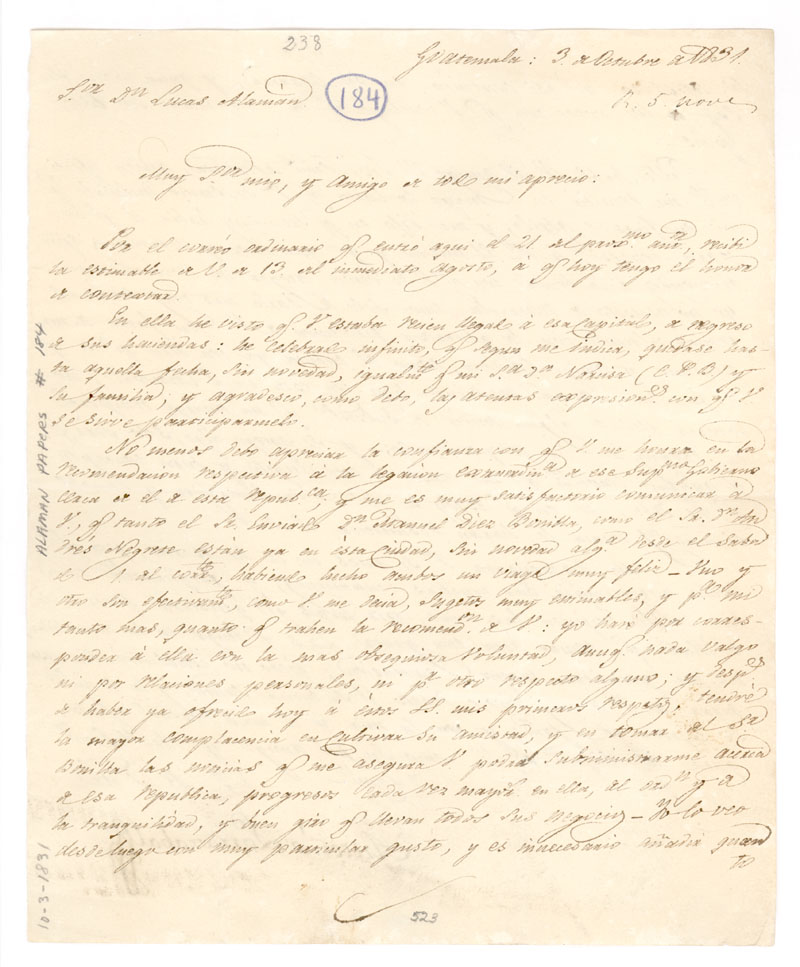 238
Guatemala: 3. de Octubre de 1831.
S.or Dn Lucas Alamán.
184
R. 5. nove
Muy S.or mio, y Amigo de todo mi aprecio:
Por el correo ordinario q.e entró aqui el 21. del pro recibi
la estimable de V. de 13. del inmediato Agosto, á q.e hoy tengo el honor
de contextar.
En ella he visto q.e V. estaba recien llegado á esa Capital, de regreso
de sus haciendas: he celebrado infinito, q.e segun me indica, quedase has-
ta aquella fecha, sin novedad, igualm.te q.e mi S.a D.a Narcisa (C. P. B) y
su familia; y agradesco, como debo, las atentas expresion.es con q.e V.
se sirve participarmelo.
No menos debo apreciar la confianza con q.e V. me honra en la
recomendacion respectiva á la legacion de ese Sup.mo Gobierno
cerca de el de esta republ.ca, y me es muy satisfactorio comunicar á
V., q.e tanto el Sr. Enviado Dn. Manuel Diez Bonilla, como el Sr. Dn. An-
drés Negrete están ya en ésta Ciudad, sin novedad alg.a desde el Saba
do 1. del corr.te, habiendo hecho ambos un viage muy feliz - Uno y
otro son efectivam.te, como V. me decia, Sugetos muy estimables, y p.a mi
tanto mas, quanto q.e trahen la recomend.on de V: yo haré por corres-
ponder á ella con la mas obsequiosa voluntad, aunq.e nada valgo
ni por relaciones personales, ni p.r otro respecto alguno; y desp.es
de haber ya ofrecido hoy á éstos SS. mis primeros respetos, tendré
la mayor complacencia en cultivar su amistad, y en tomar del Sr.
Bonilla las noticias q.e me asegura V. podrá subministrarme acerca
de esa republica, progresos cada vez mayor.s en ella, del ord.n y de
la tranquilidad, y buen giro q.e llevan todos sus negocios - Yo lo veo
desde luego con muy particular gusto, y es innecesario añadir quan
to
523
ALAMAN PAPERS # 184
10-3-1831